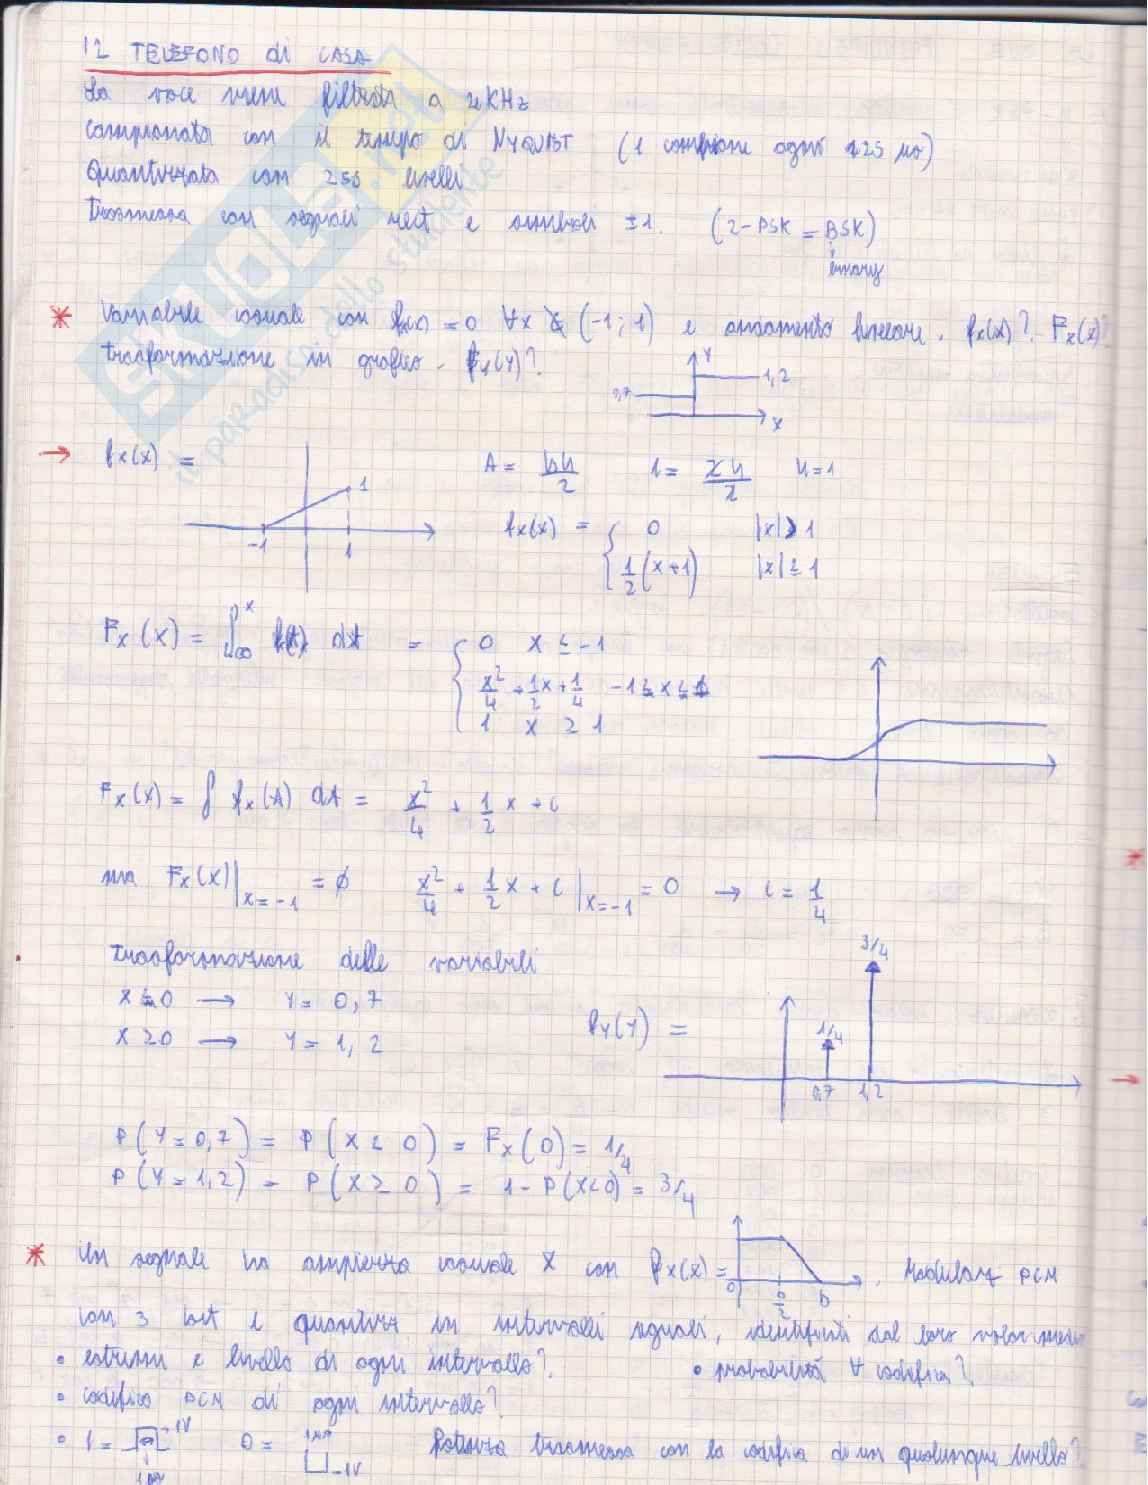 12 TELEFONO di CASA
La voce viene filtrata a 4 KHz
campionata con il tempo di NYQUIST (1 campione ogni 125 μs)
Quantizzata con 255 livelli
trasmessa con segnali rect e simboli ±1. (2-PSK = BSK)
binary
* Variabile casuale con fx(x) = 0 ∀x ∉ (-1; 1) e andamento lineare. fx(x)? Fx(x)?
trasformazione in grafico. fY(Y)?
Y
0,7 1,2
X
→ fx(x) =
1
-1 1
A = bh/2 1 = 2h/2 h=1
fx(x) = { 0 |x| > 1
1/2 (x+1) |x| ≤ 1
Fx(x) = ∫_{-∞}^{x} dt = { 0 x ≤ -1
x²/4 + 1/2 x + 1/4 -1 ≤ x ≤ 1
1 x ≥ 1
Fx(x) = ∫ fx(A) dA = x²/4 + 1/2 x + c
ma Fx(x)|x=-1 = ∅ x²/4 + 1/2 x + c |x=-1 = 0 → c = 1/4
trasformazione delle variabili
x ≤ 0 → Y = 0,7
x ≥ 0 → Y = 1,2
fY(Y) =
1/4 3/4
0,7 1,2
P(Y = 0,7) = P(X < 0) = Fx(0) = 1/4
P(Y = 1,2) = P(X ≥ 0) = 1 - P(X<0) = 3/4
* Un segnale ha ampiezza casuale X con fx(x) = . Modulaz PCM
0 b/2 b
con 3 bit e quantizz in intervalli uguali, identificati dal loro valor medio
• estremi e livello di ogni intervallo? • probabilità ∀ codifica?
• codifica PCM di ogni intervallo?
• 1 = 1V 0 = -1V Potenza trasmessa con la codifica di un qualunque livello?
skuola.net
il paradiso dello studente